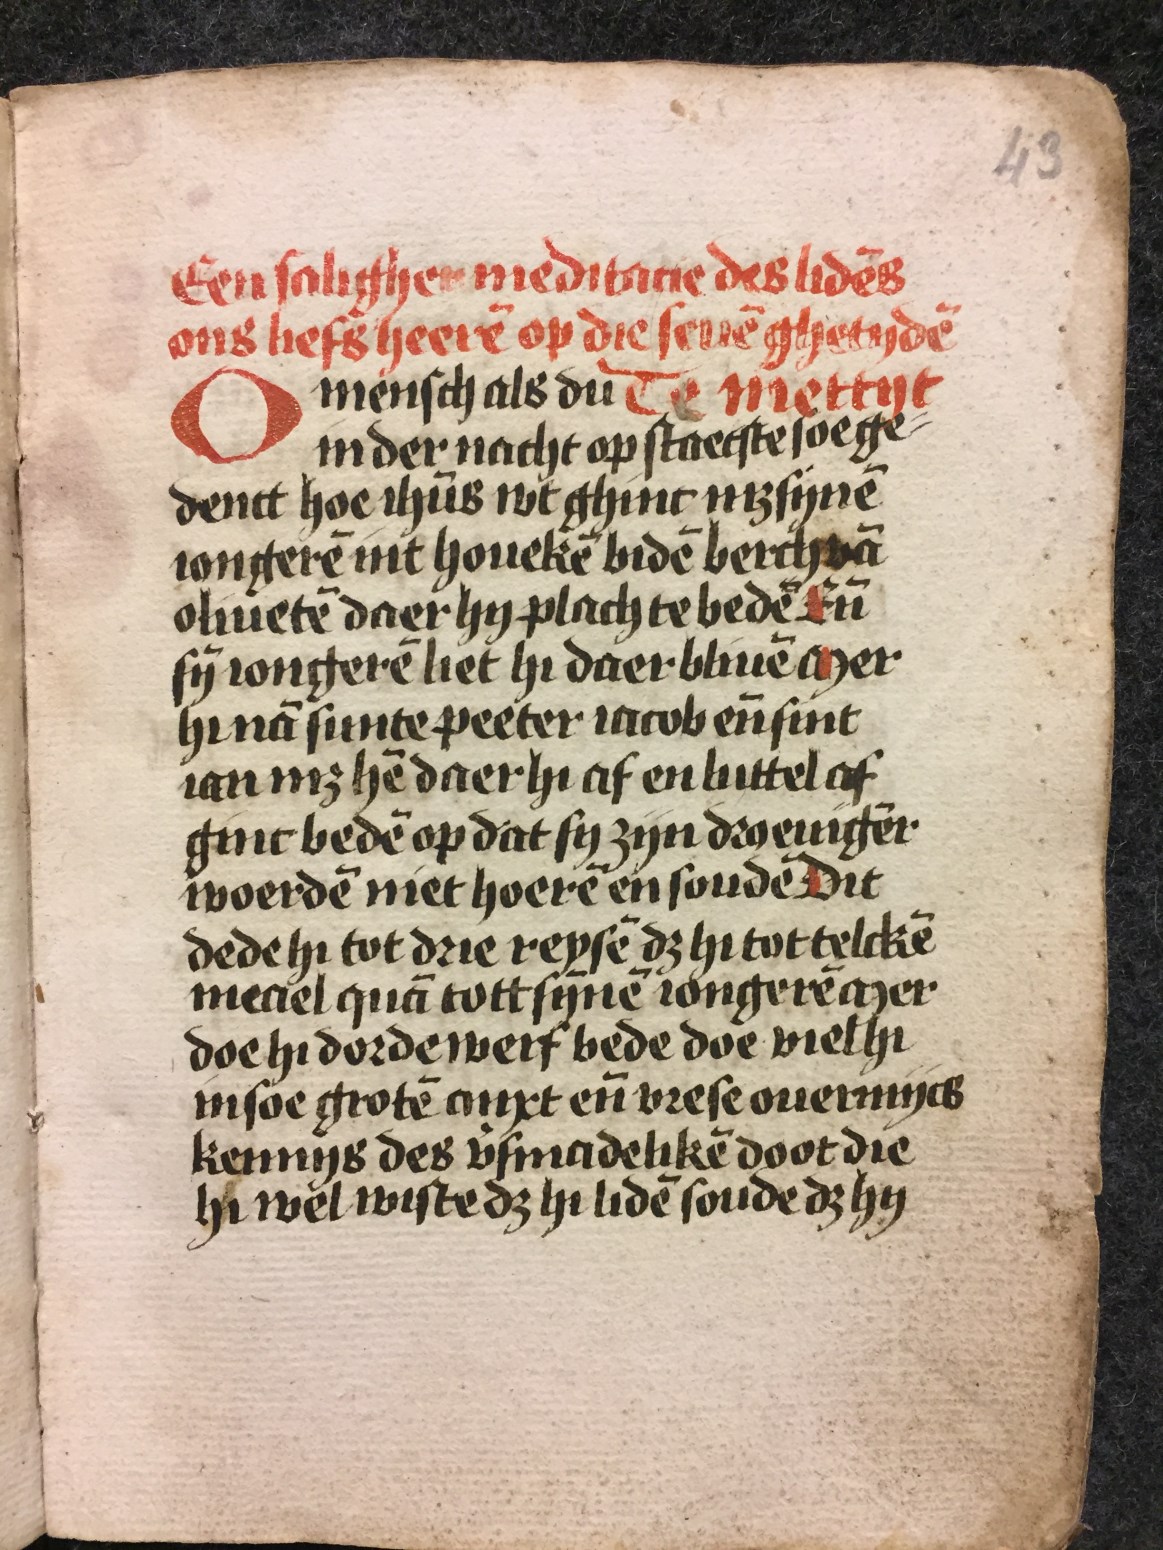 43
Een saligher meditacie des lidēs
ons liefs heerē op die seuē ghetydē
O mensch als du Te mettijt
in der nacht op staetste soe ge-
denct hoe ihūs wt ghinc mꝫ sijnē
iongerē int houekē bidē berch vā
oliuetē daer hy plach te bedē Eñ
sȳ iongerē liet hi daer bliuē Mer
hi nā sunte peeter iacob eñ sint
ian mꝫ hē daer hi af en luttel af
ginc bedē op dat sy zijn droeuigēr
woerdē niet hoerē en soudē Dit
dede hi tot drie reysē dꝫ hi tot telckē
mael quā tott sȳnē iongerē Mer
doe hi dorde werf bede doe viel hi
in soe grotē anxt eñ vrese ouermijts
kennijs des v̄smadelikē doot die
hi wel wiste dꝫ hi lidē soude dꝫ hy